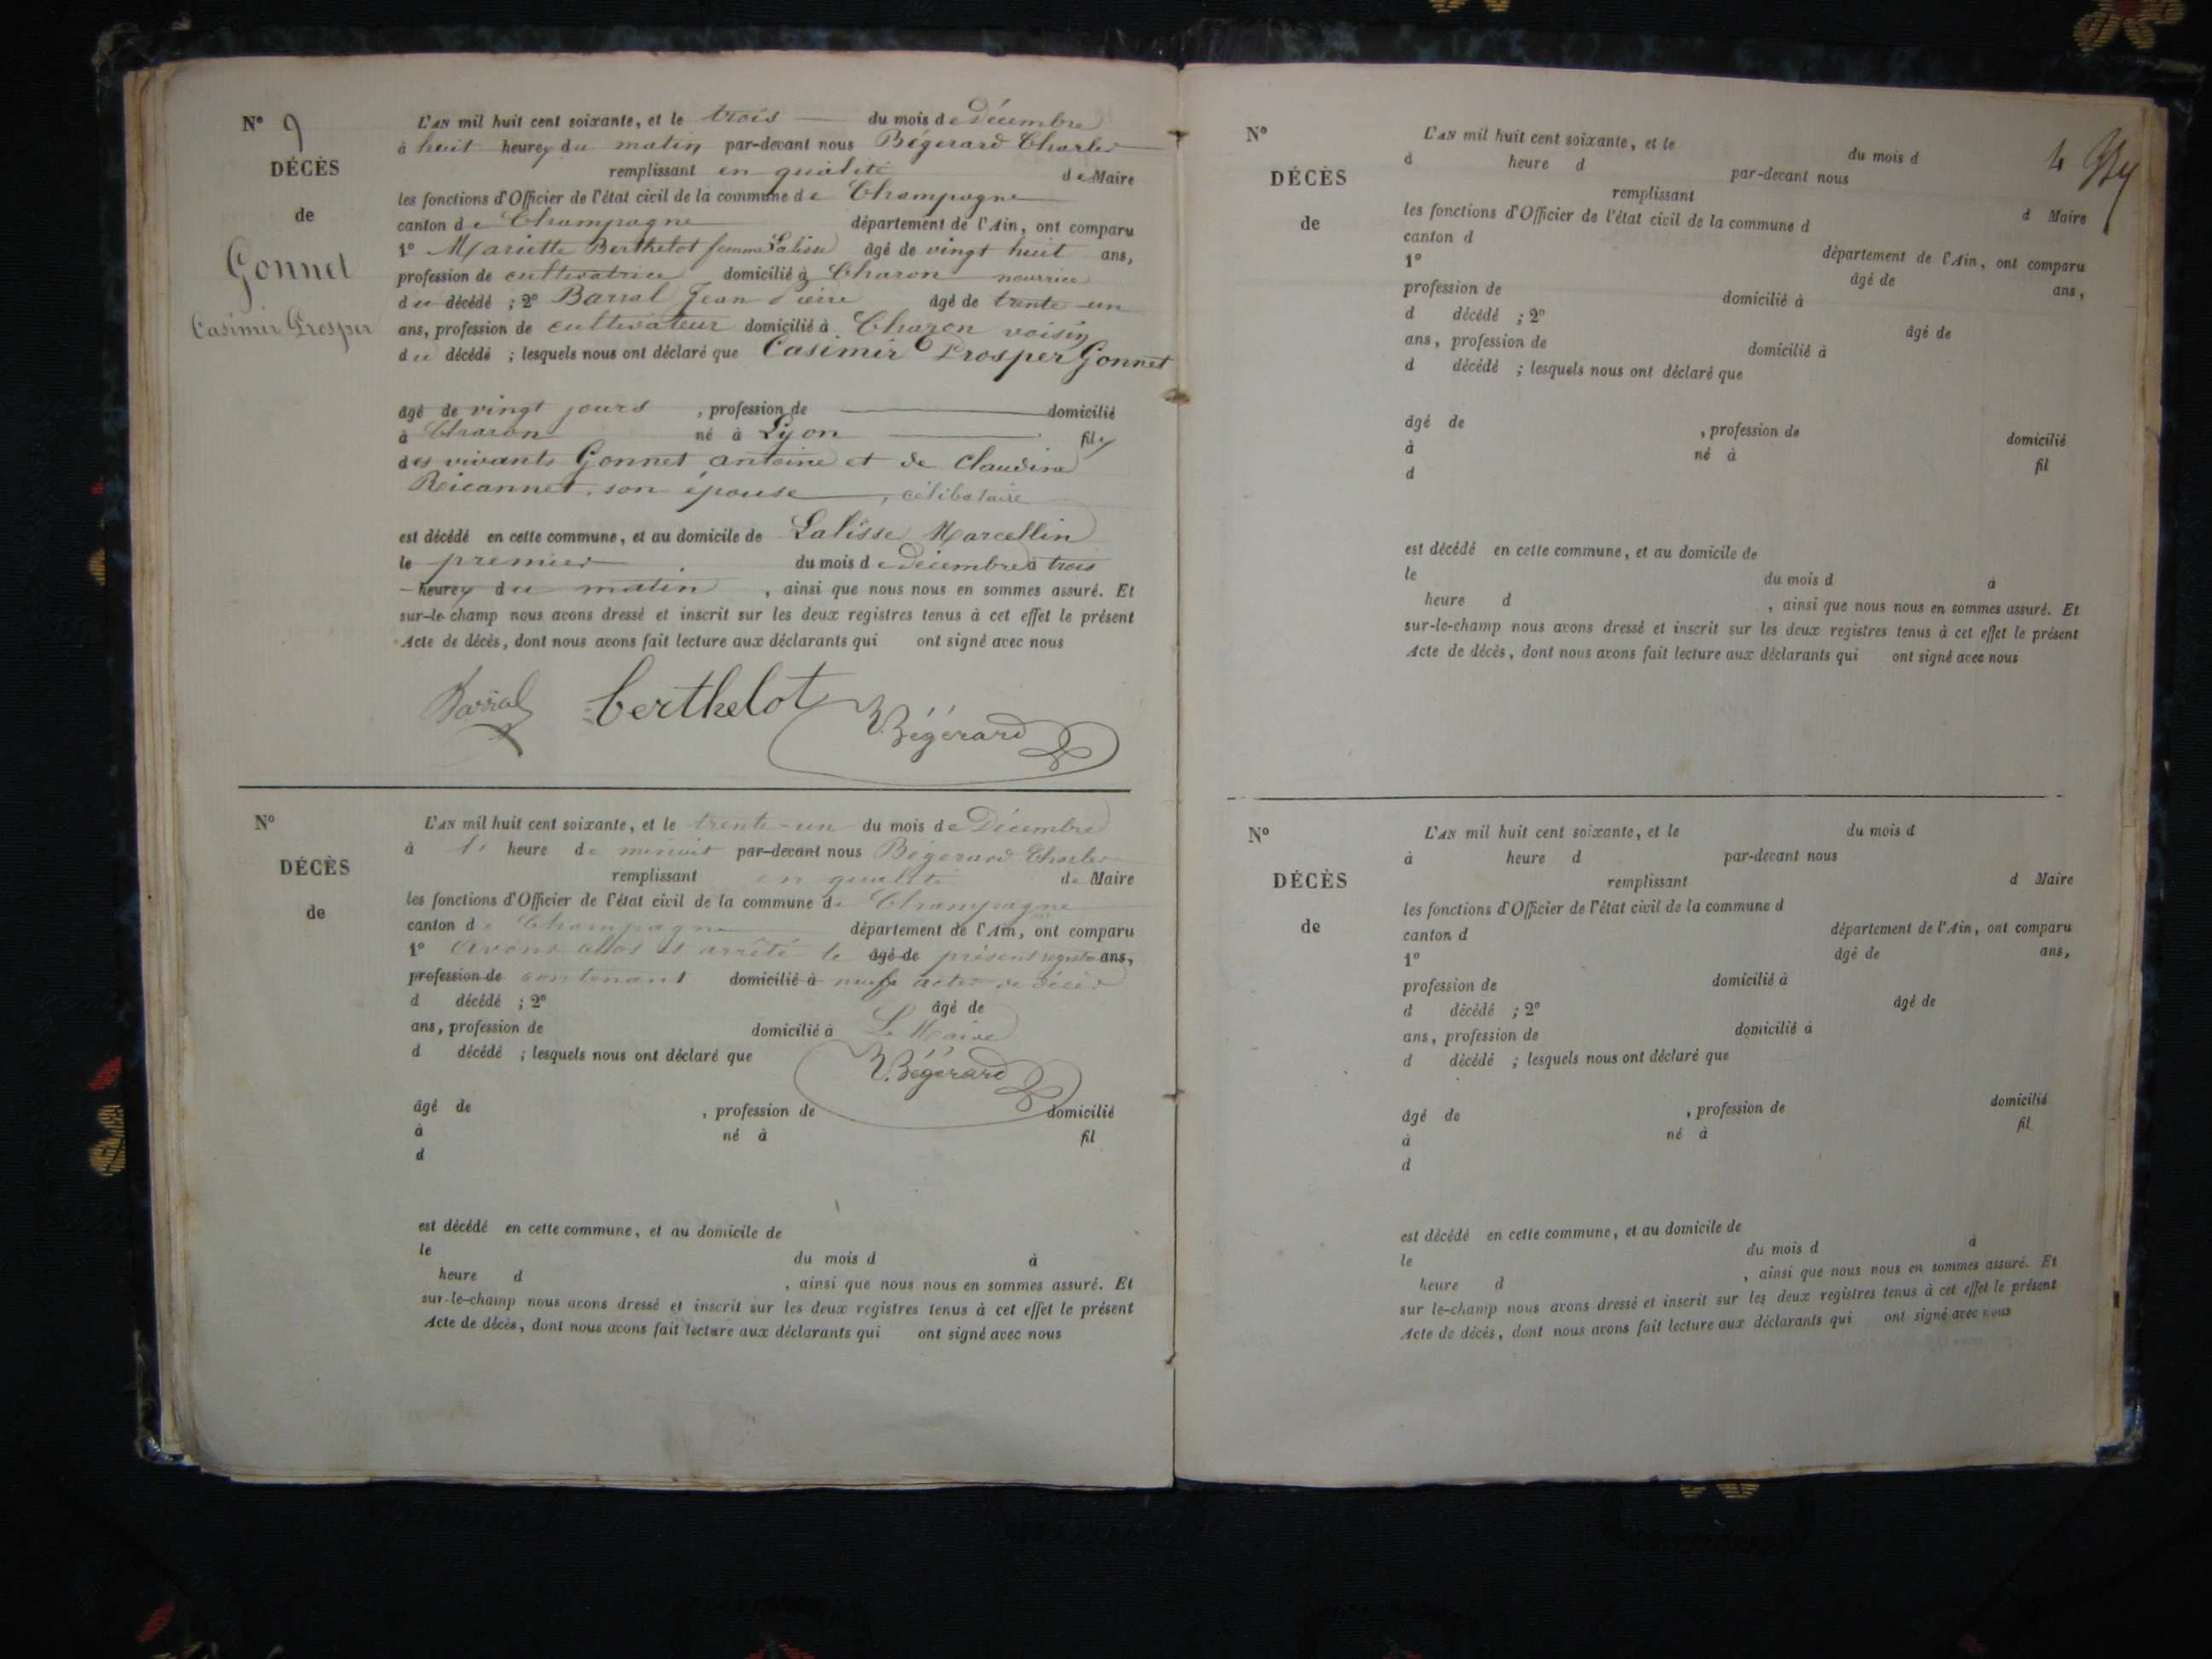 N° 9
DÉCÈS
de
Gonnet
Casimir Prosper
L'AN mil huit cent soixante, et le trois du mois de Décembre
à huit heures du matin par-devant nous Bégerard Charles
remplissant en qualité de Maire
les fonctions d'Officier de l'état civil de la commune de Champagne
canton de Champagne département de l'Ain, ont comparu
1° Mariette Berthelot femme Lalisse âgé de vingt huit ans,
profession de cultivatrice domicilié à Charon nourrice
du décédé ; 2° Barral Jean Pierre âgé de trente-un
ans, profession de cultivateur domicilié à Charon voisin
du décédé ; lesquels nous ont déclaré que Casimir Prosper Gonnet
âgé de vingt jours , profession de domicilié
à Charon né à Lyon fils
des vivants Gonnet antoine et de Claudine
Reicannet, son épouse, célibataire
est décédé en cette commune, et au domicile de Lalisse Marcellin
le premier du mois de Décembre à trois
heures du matin , ainsi que nous nous en sommes assuré. Et
sur-le-champ nous avons dressé et inscrit sur les deux registres tenus à cet effet le présent
Acte de décès, dont nous avons fait lecture aux déclarants qui ont signé avec nous
Barral berthelot Bégerard
N°
DÉCÈS
de
L'AN mil huit cent soixante, et le trente-un du mois de Décembre
à heure de minuit par-devant nous Bégerard Charles
remplissant en qualité de Maire
les fonctions d'Officier de l'état civil de la commune de Champagne
canton de Champagne département de l'Ain, ont comparu
1° Avons clos et arrêté le âgé de présent registre ans,
profession de contenant domicilié à neuf actes de décès
d décédé ; 2° âgé de
ans, profession de domicilié à Le Maire
d décédé ; lesquels nous ont déclaré que
Bégerard
âgé de , profession de domicilié
à né à fil
d
est décédé en cette commune, et au domicile de
le du mois d à
heure d , ainsi que nous nous en sommes assuré. Et
sur-le-champ nous avons dressé et inscrit sur les deux registres tenus à cet effet le présent
Acte de décès, dont nous avons fait lecture aux déclarants qui ont signé avec nous
4
N°
DÉCÈS
de
L'AN mil huit cent soixante, et le du mois d
à heure d par-devant nous
remplissant d Maire
les fonctions d'Officier de l'état civil de la commune d
canton d département de l'Ain, ont comparu
1° âgé de ans,
profession de domicilié à
d décédé ; 2° âgé de
ans, profession de domicilié à
d décédé ; lesquels nous ont déclaré que
âgé de , profession de domicilié
à né à fil
d
est décédé en cette commune, et au domicile de
le du mois d à
heure d , ainsi que nous nous en sommes assuré. Et
sur-le-champ nous avons dressé et inscrit sur les deux registres tenus à cet effet le présent
Acte de décès, dont nous avons fait lecture aux déclarants qui ont signé avec nous
N°
DÉCÈS
de
L'AN mil huit cent soixante, et le du mois d
à heure d par-devant nous
remplissant d Maire
les fonctions d'Officier de l'état civil de la commune d
canton d département de l'Ain, ont comparu
1° âgé de ans,
profession de domicilié à
d décédé ; 2° âgé de
ans, profession de domicilié à
d décédé ; lesquels nous ont déclaré que
âgé de , profession de domicilié
à né à fil
d
est décédé en cette commune, et au domicile de
le du mois d à
heure d , ainsi que nous nous en sommes assuré. Et
sur le-champ nous avons dressé et inscrit sur les deux registres tenus à cet effet le présent
Acte de décès, dont nous avons fait lecture aux déclarants qui ont signé avec nous